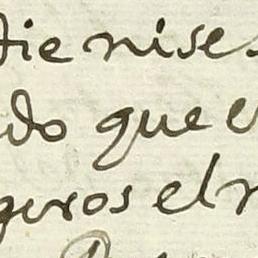 die nise
do que e
geros el r